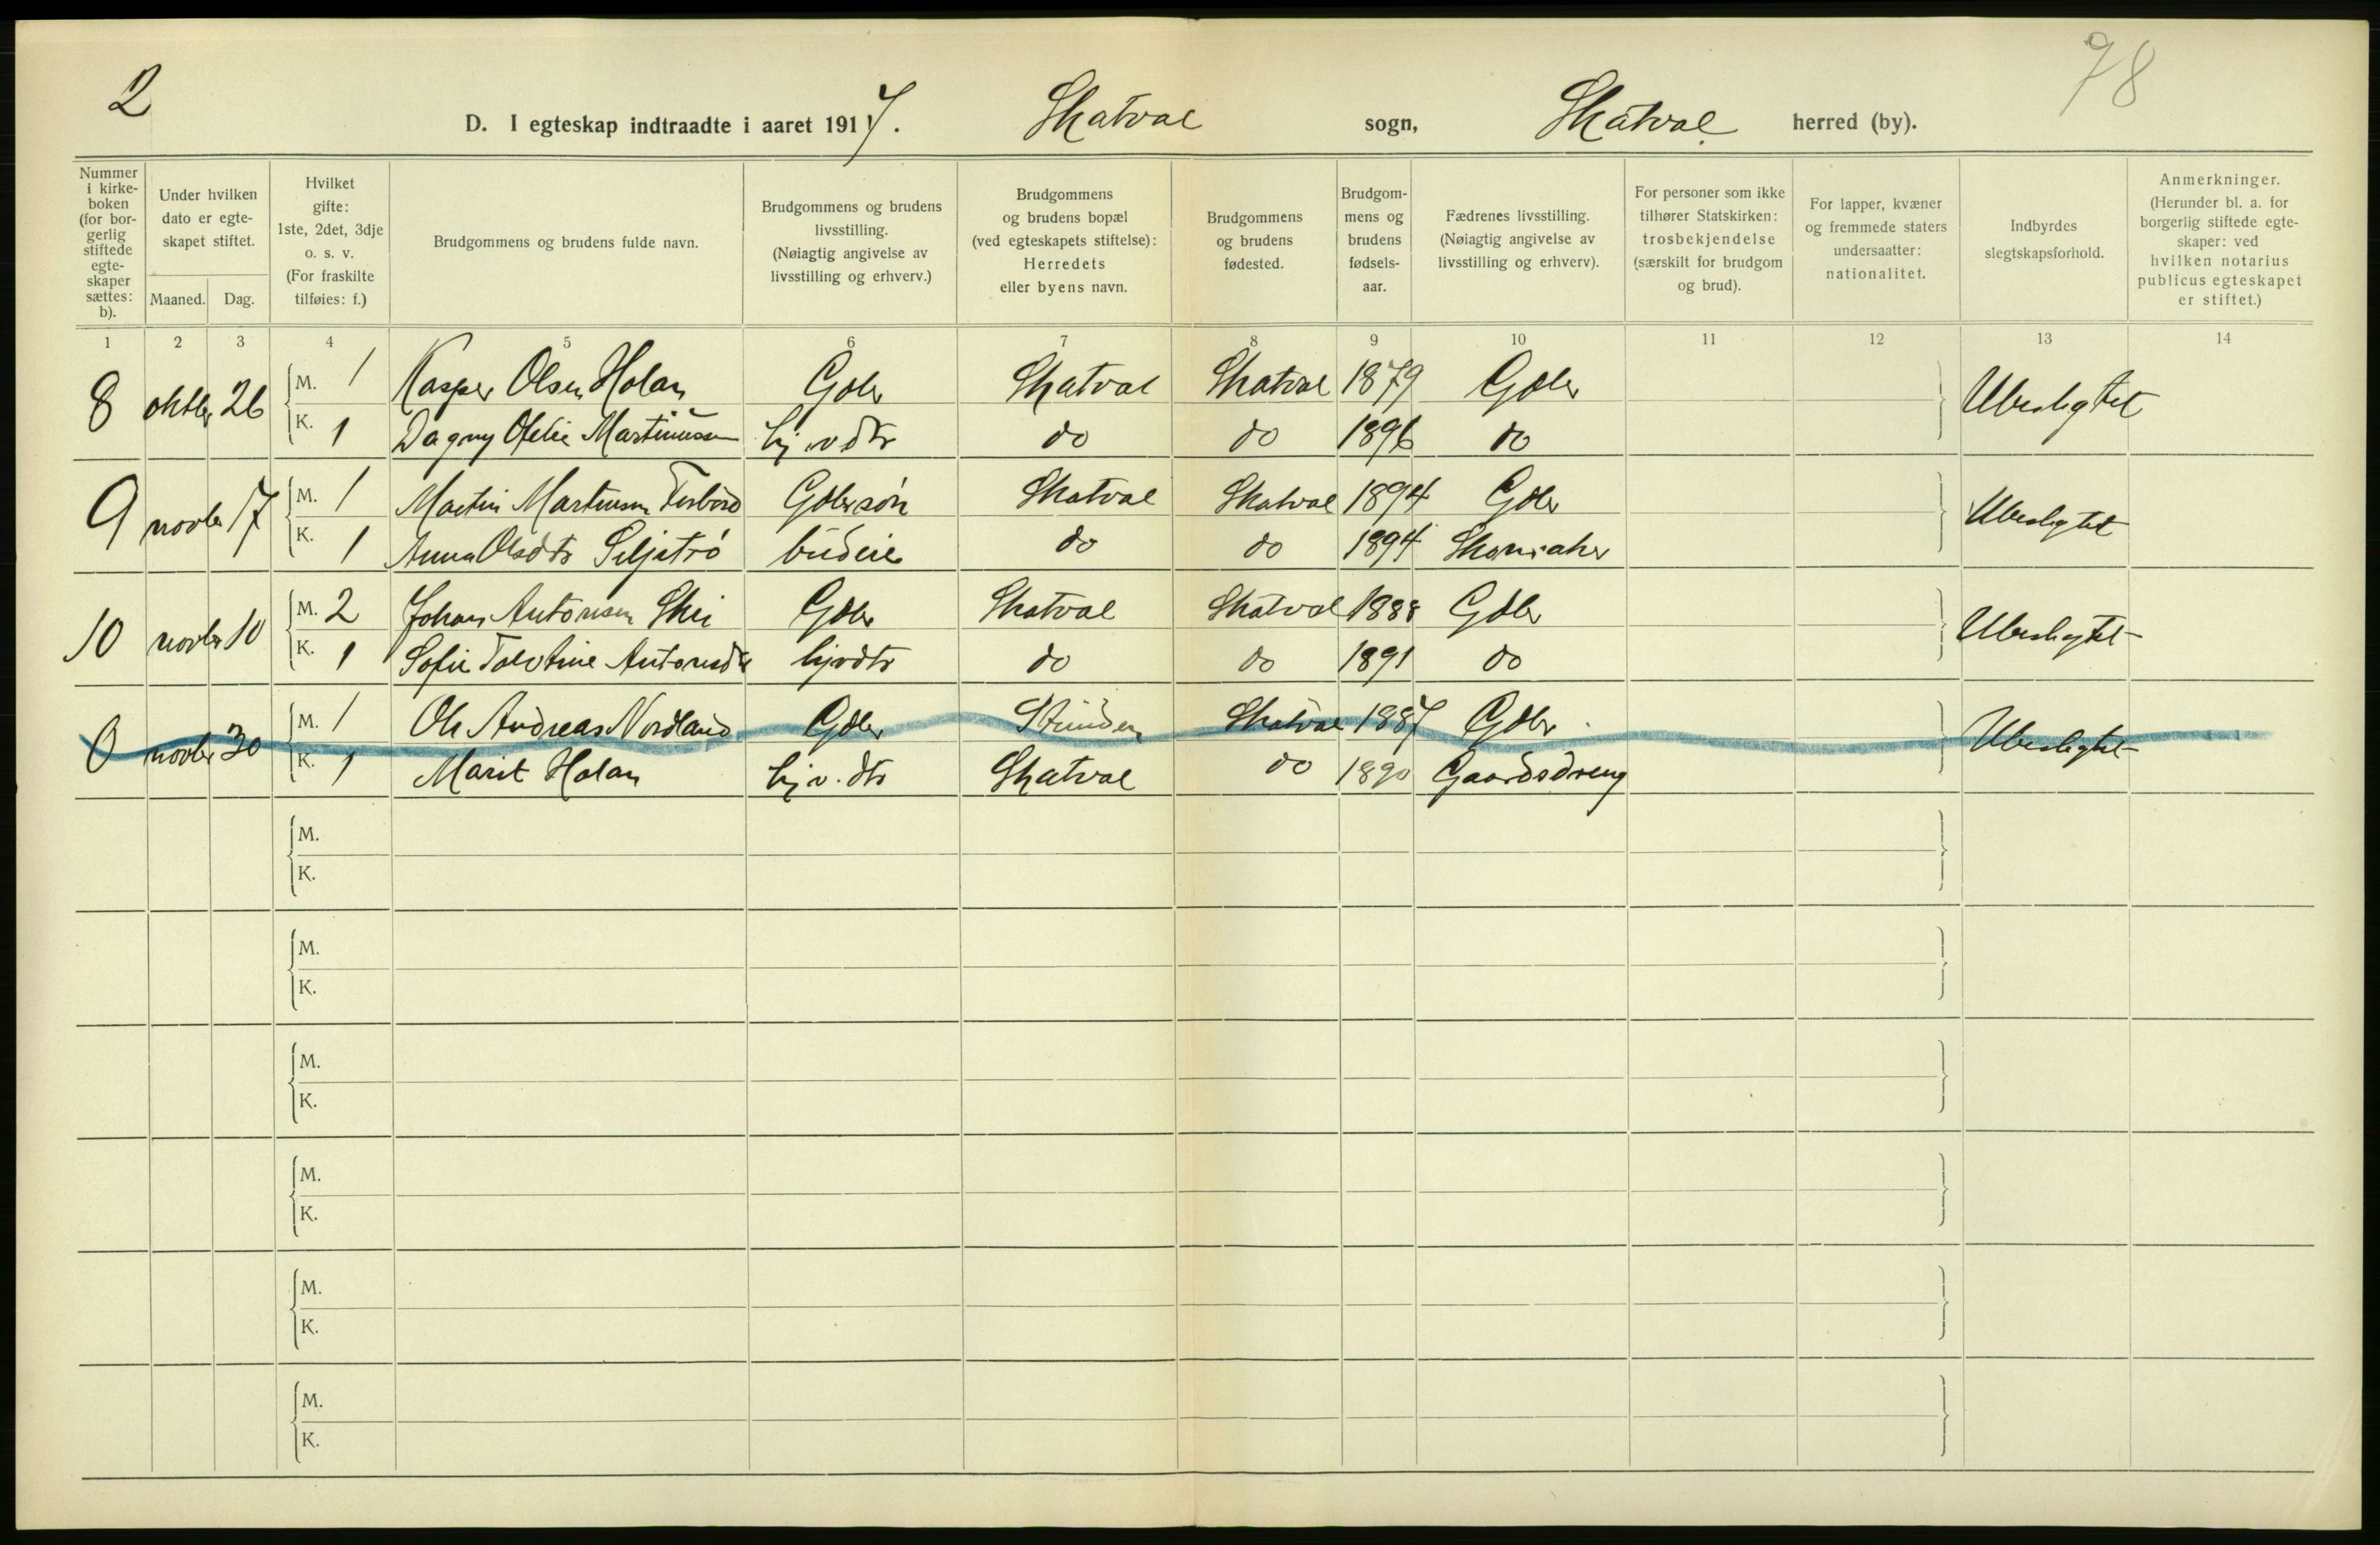 2
78
D. I egteskap indtraadte i aaret 1917. Skatval sogn, Skatval herred (by).
Nummer i kirkeboken (for borgerlig stiftede egteskaper sættes: b).
Under hvilken dato er egteskapet stiftet.
Maaned. Dag.
Hvilket gifte: 1ste, 2det, 3dje o. s. v. (For fraskilte tilføies: f.)
Brudgommens og brudens fulde navn.
Brudgommens og brudens livsstilling. (Nøiagtig angivelse av livsstilling og erhverv.)
Brudgommens og brudens bopæl (ved egteskapets stiftelse): Herredets eller byens navn.
Brudgommens og brudens fødested.
Brudgommens og brudens fødselsaar.
Fædrenes livsstilling. (Nøiagtig angivelse av livsstilling og erhverv).
For personer som ikke tilhører Statskirken: trosbekjendelse (særskilt for brudgom og brud).
For lapper, kvæner og fremmede staters undersaatter: nationalitet.
Indbyrdes slegtskapsforhold.
Anmerkninger. (Herunder bl. a. for borgerlig stiftede egteskaper: ved hvilken notarius publicus egteskapet er stiftet.)
1 2 3 4 5 6 7 8 9 10 11 12 13 14
8 oktbr 26 M. 1 Kasper Olsen Holan Gdbr Skatval Skatval 1879 Gdbr Ubeslegtet
K. 1 Dagny Ofelie Martinusen hj.v dtr do do 1896 do
9 novbr 17 M. 1 Martin Martinsen Gdbrsøn Skatval Skatval 1894 Gdbr Ubeslegtet
K. 1 Anna Olsdtr budeie do do 1894 Skomaker
10 novbr 10 M. 2 Johan Antonsen Skei Gdbr Skatval Skatval 1888 Gdbr Ubeslegtet
K. 1 Sofie Antonsdtr hjvdtr do do 1891 do
0 novbr 30 M. 1 Ole Andreas Nordland Gdbr Skatval 1887 Gdbr Ubeslegtet
K. 1 Marit Holan hj v. dtr Skatval do 1890 Gaardsdreng
M.
K.
M.
K.
M.
K.
M.
K.
M.
K.
M.
K.